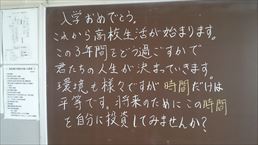 入学おめでとう。
これから高校生活が始まります。
この3年間をどう過ごすかで
君たちの人生が決まっていきます。
環境も様々ですが時間だけは
平等です。将来のためにこの時間
を自分に投資してみませんか?